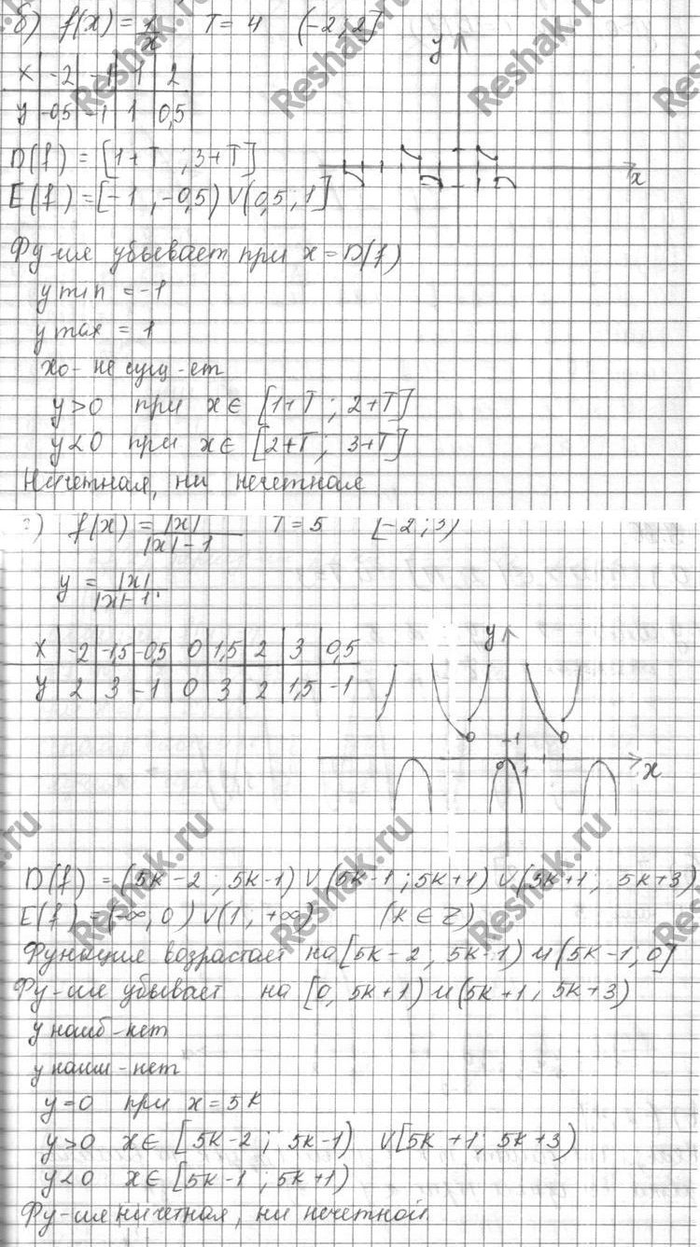 б) f(x) = 1/x T = 4 (-2; 2]
x | -2 | -1 | 1 | 2
y | -0,5 | -1 | 1 | 0,5
y
x
D(f) = [1+T ; 3+T]
E(f) = [-1 , -0,5) ∪ (0,5 ; 1]
Фу-ия убывает при x = D(f)
y min = -1
y max = 1
x0 - не сущ-ет
y>0 при x ∈ [1+T ; 2+T]
y<0 при x ∈ [2+T ; 3+T]
Ничетная, ни нечетная
) f(x) = |x| / |x| - 1 T = 5 [-2 ; 3)
y = |x| / |x| - 1
x | -2 | -1,5 | -0,5 | 0 | 1,5 | 2 | 3 | 0,5
y | 2 | 3 | -1 | 0 | 3 | 2 | 1,5 | -1
y
1
0
1
x
D(f) = (5k - 2 ; 5k-1) ∪ (5k-1 ; 5k+1) ∪ (5k+1 ; 5k+3)
E(f) = (-∞, 0) ∪ (1, +∞) (k ∈ Z)
Функция возрастает на [5k - 2 ; 5k - 1) и (5k - 1, 0]
Фу-ия убывает на [0, 5k+1) и (5k+1, 5k+3)
y наиб - нет
y наим - нет
y=0 при x = 5k
y>0 x ∈ [5k-2 ; 5k-1) ∪ [5k+1 ; 5k+3)
y<0 x ∈ [5k-1 ; 5k+1)
Фу-ия ничетная, ни нечетной.
Reshak.ru
Reshak.ru
Reshak.ru
Reshak.ru
Reshak.ru
Reshak.ru